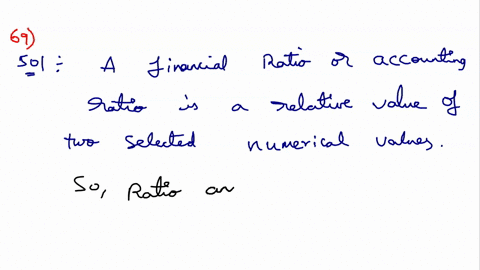 69)
Sol : A financial Ratio or accounting
ratio is a relative value of
two selected numerical values.
So, Ratio an